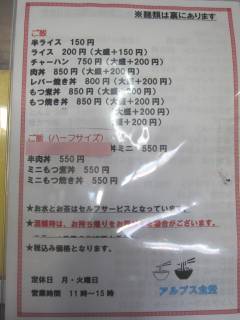 ※麺類は裏にあります
ご飯
半ライス 150円
ライス 200円（大盛+150円）
チャーハン 750円（大盛+200円）
肉丼 850円（大盛+200円）
レバー焼き丼 800円（大盛+200円）
もつ煮丼 850円（大盛+200円）
もつ焼き丼 850円（大盛+200円）
（大盛+200円）
（大盛+200円）
ご飯（ハーフサイズ）
丼ミニ 550円
半肉丼 550円
ミニもつ煮丼 550円
ミニもつ焼き丼 550円
★お水とお茶はセルフサービスとなっています
★混雑時は、お持ち帰りをお断りする場合がございます。
★税込み価格となります。
定休日 月・火曜日
営業時間 11時～15時
アルプス食堂